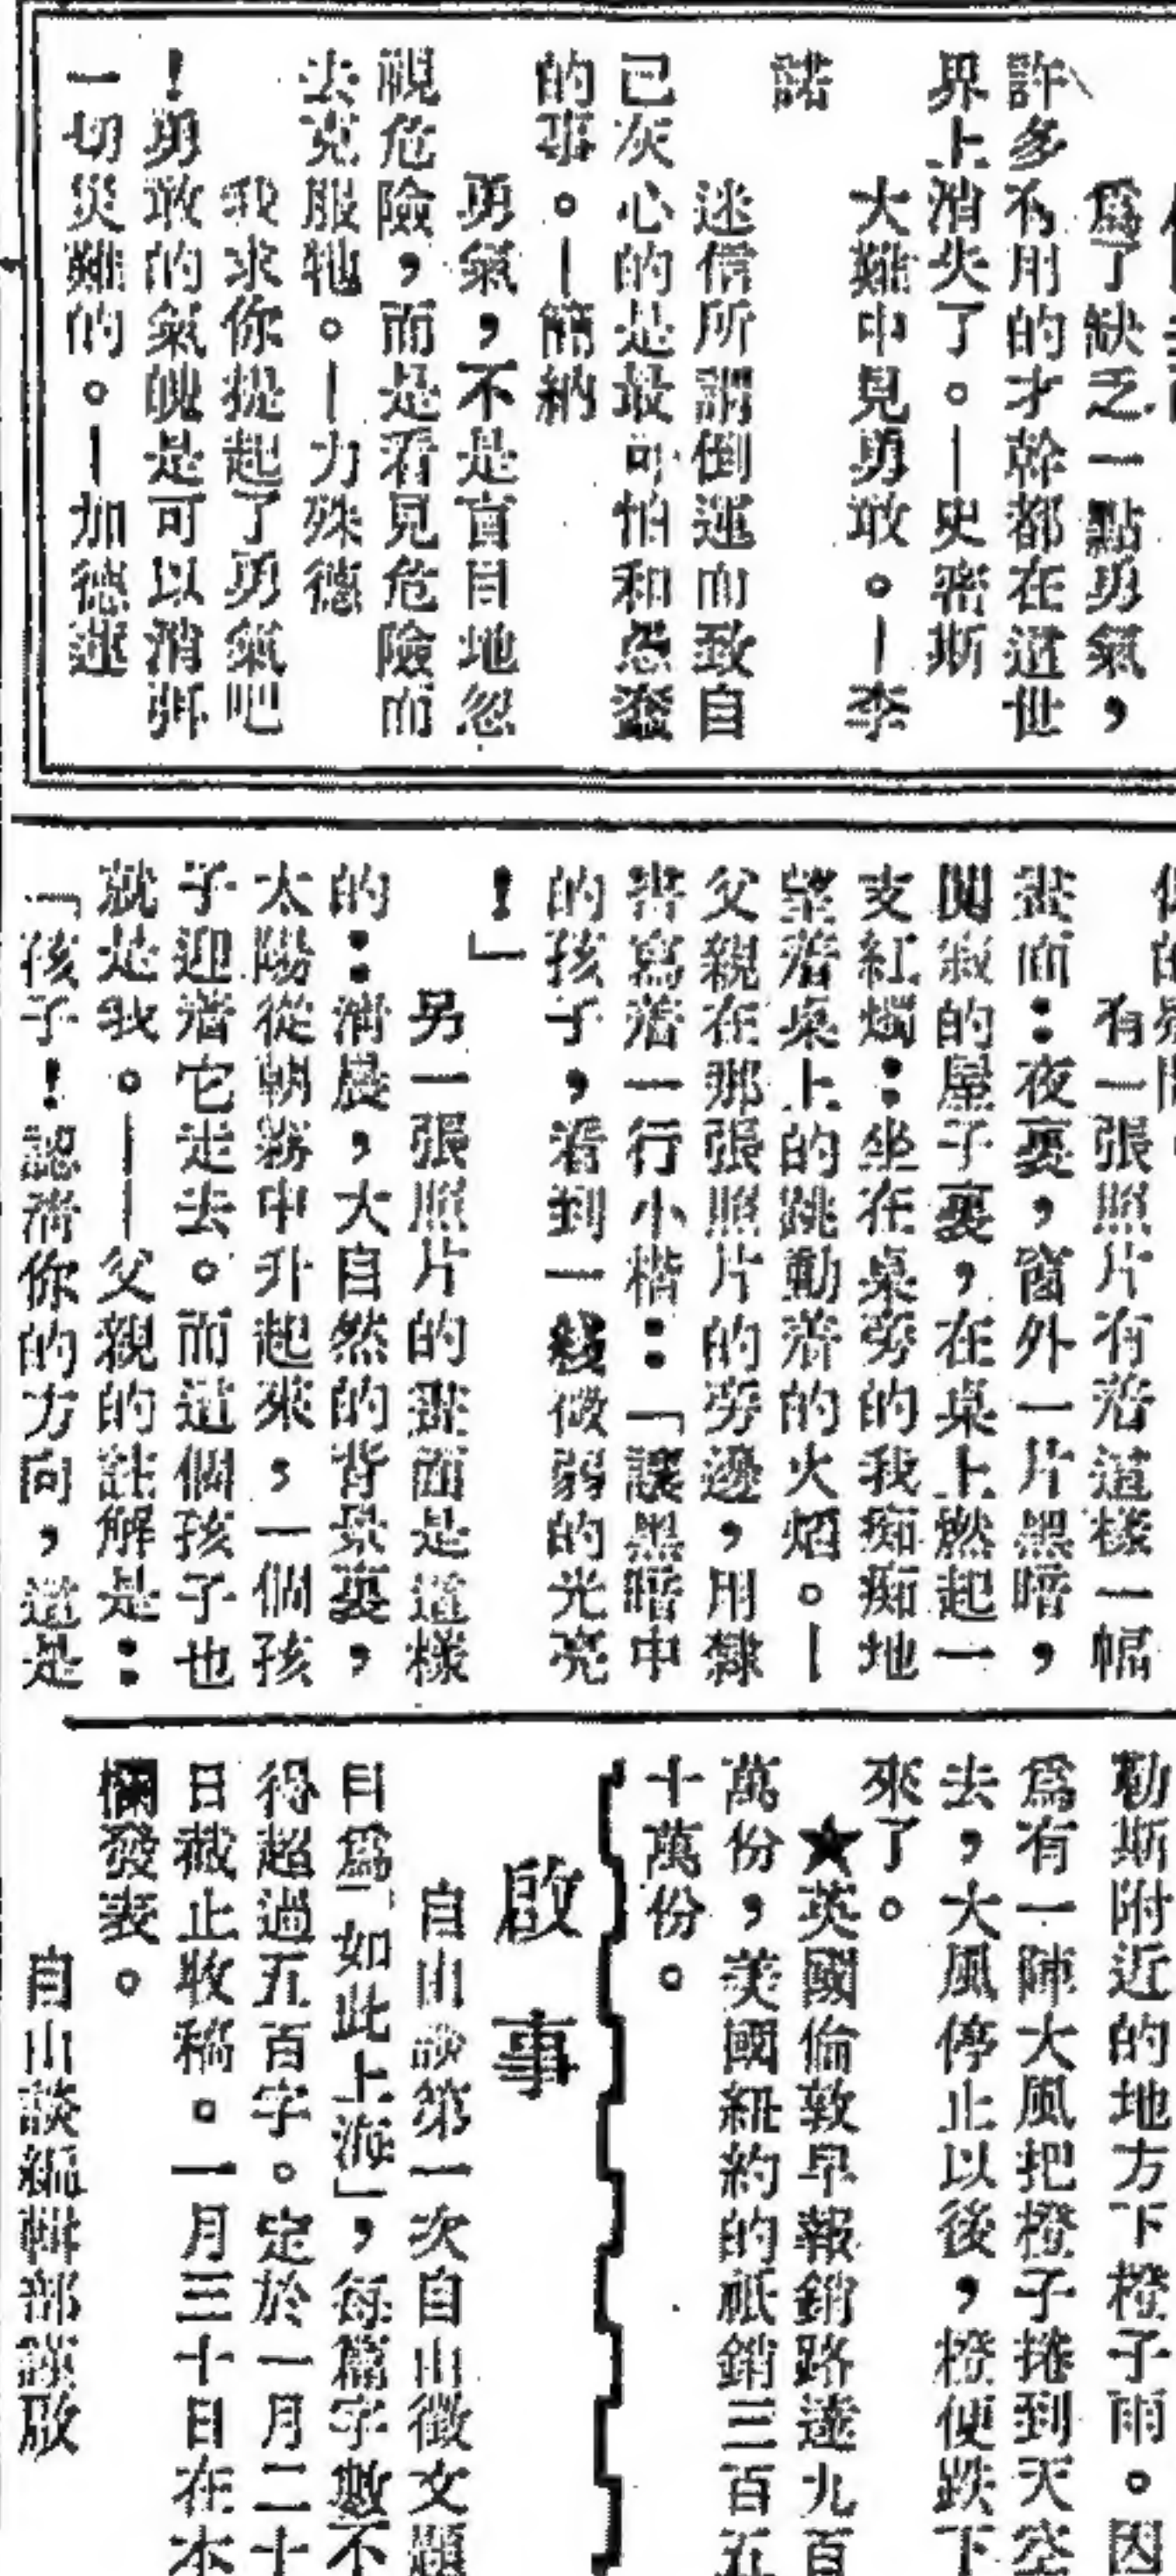 爲了缺乏一點勇氣，
許多有用的才幹都在這世
界上消失了。—史密斯
大難中見勇敢。—李
諾
迷信所謂倒運而致自
己灰心的是最可怕和愚蠢
的事。—簡納
勇氣，不是盲目地忽
視危險，而是看見危險而
去克服牠。—力殊德
我求你提起了勇氣吧
！勇敢的氣魄是可以消弭
一切災難的。—加德運
有一張照片有着這樣一幅
畫面：夜裏，窗外一片黑暗，
闃寂的屋子裏，在桌上燃起一
支紅燭：坐在桌旁的我痴痴地
望着桌上的跳動着的火焰。—
父親在那張照片的旁邊，用隸
書寫着一行小楷：「讓黑暗中
的孩子，看到一綫微弱的光亮
！」
另一張照片的畫面是這樣
的：清晨，大自然的背景裏，
太陽從朝霧中升起來，一個孩
子迎着它走去。而這個孩子也
就是我。——父親的註解是：
「孩子！認清你的方向，這是
勒斯附近的地方下橙子雨。因
爲有一陣大風把橙子捲到天空
去，大風停止以後，橙便跌下
來了。
★英國倫敦早報銷路達九百
萬份，美國紐約的祇銷三百五
十萬份。
啟事
自由談第一次自由徵文題
目爲「如此上海」，每篇字數不
得超過五百字。定於一月二十
日截止收稿。一月三十日在本
欄發表。
自由談編輯部謹啟